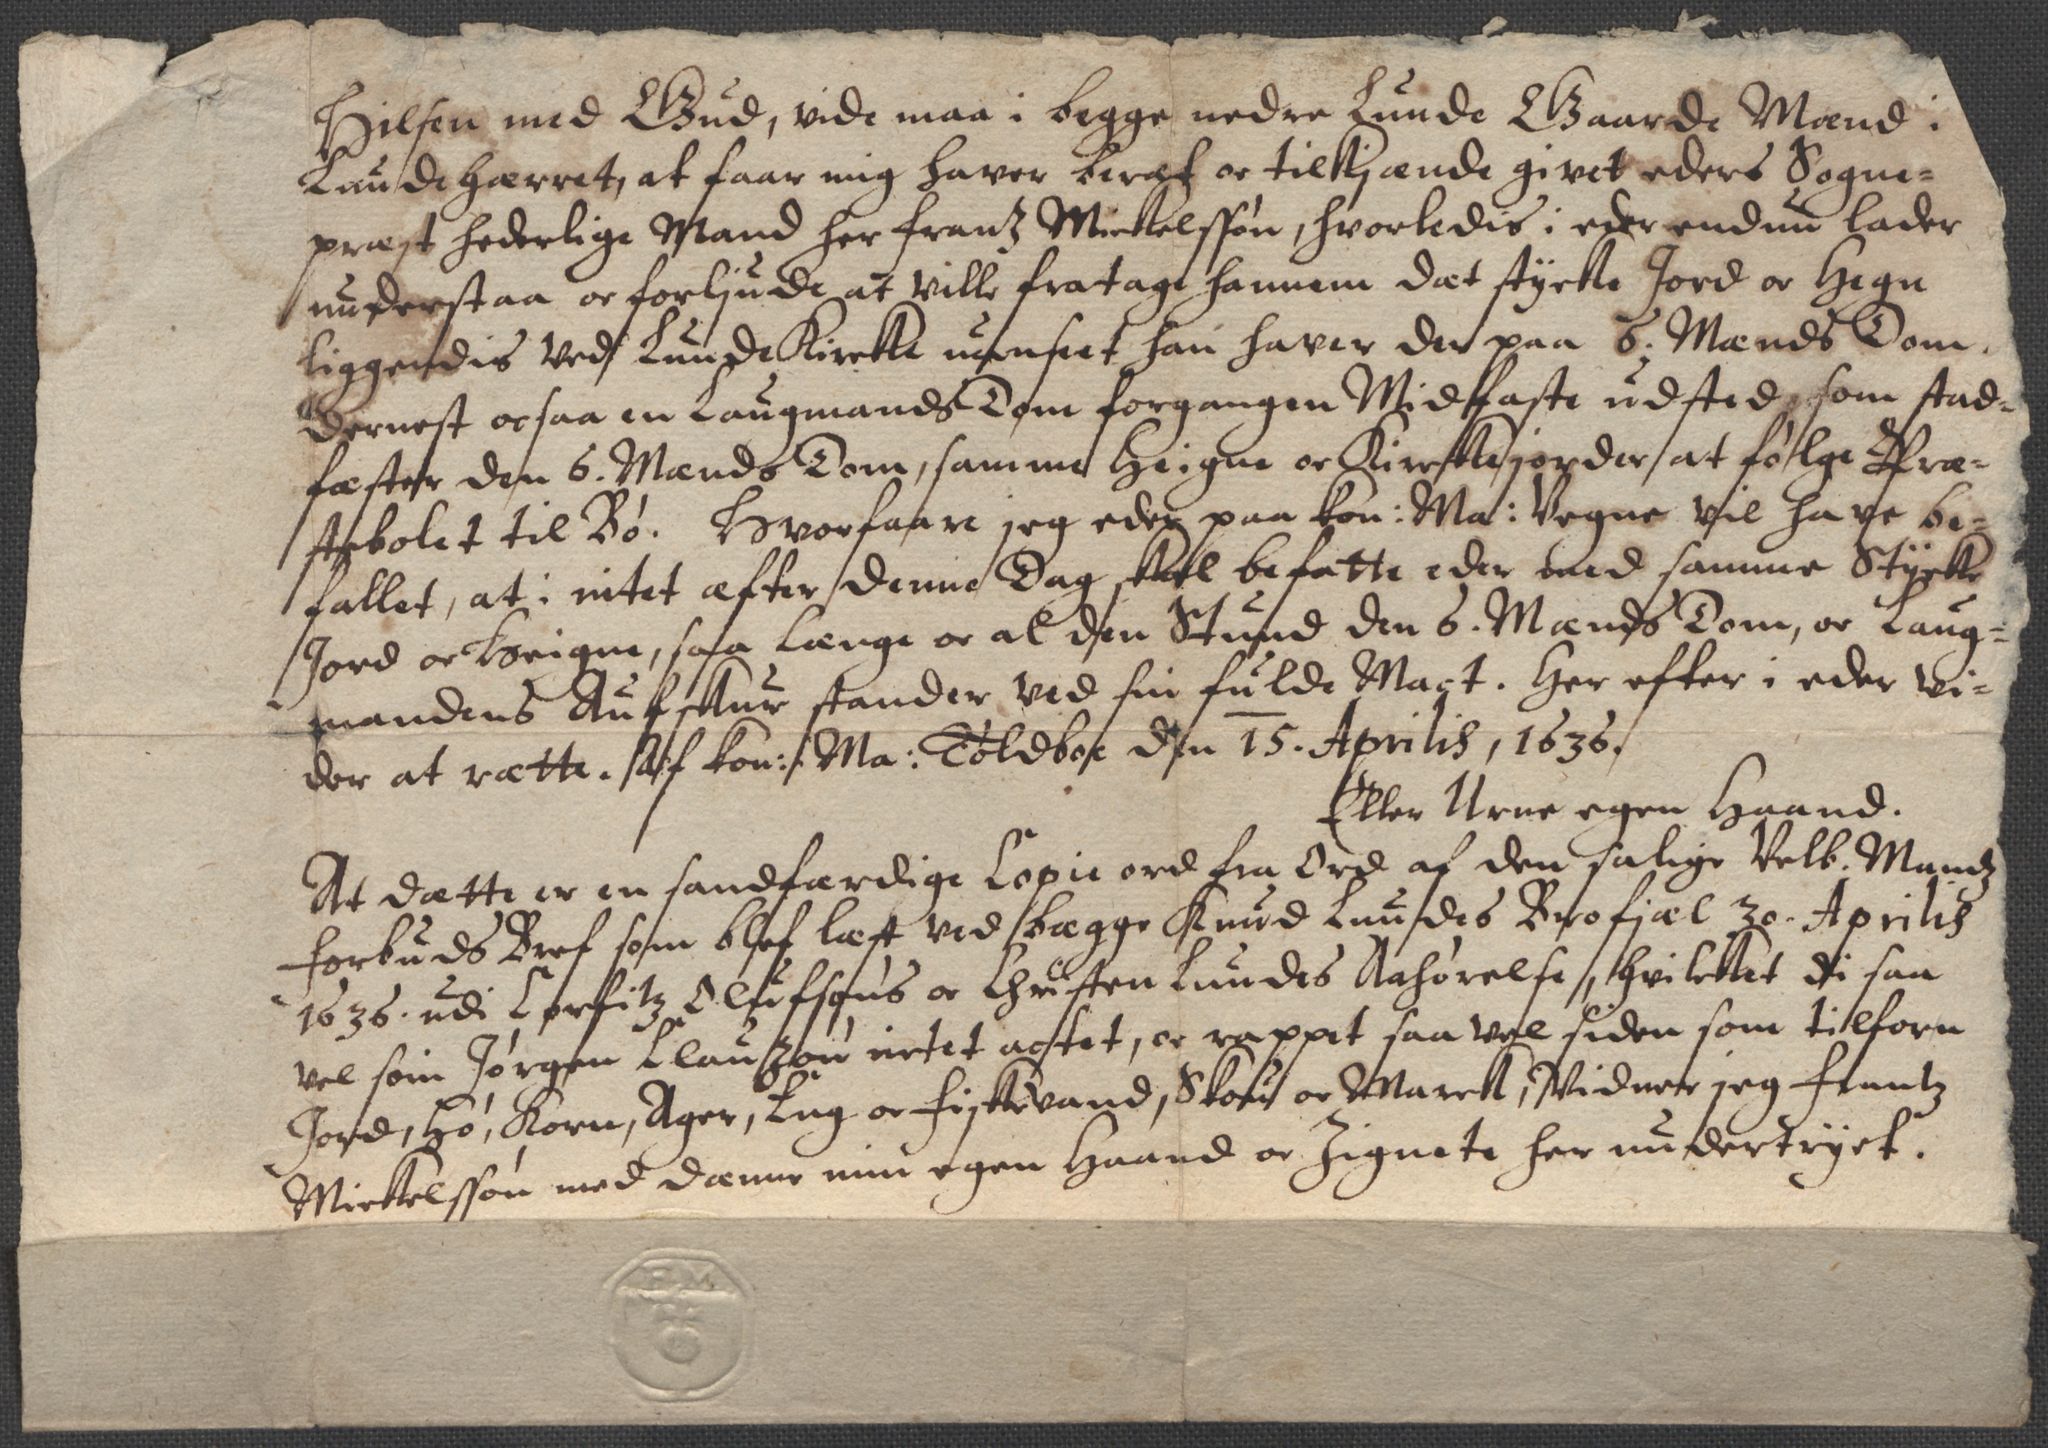 Hilsen med Gud, vide maa i begge nedre Lunde Gaarde Mænd i
Lunde hærret, at faar mig haver beræt oc tilkiænde givet eders Sogne=
præst hederlige Mand her Frantz Mickelssøn, hvorledis i eder endnu lader
understaa oc forliude at ville fratage hannem dæt stycke Jord oc Hegn
liggendis ved Lunde Kircke uanseet han haver der paa 6. Mænds Dom.
dernest ocsaa en Laugmands Dom forgangen Midfaste udsted, som stad=
fæster den 6. Mænds Dom, samme Heigne oc Kirckejorder at følge Præ=
stebolet til Bø. Hvorfaare jeg eder paa kon: Ma: Vegne vil have be=
fallet, at i intet æfter denne Dag skal befatte eder med samme Stycke
Jord oc Heigne, saa længe oc al den Stund den 6. Mænds Dom, oc Laug=
mandens Aufskur stander ved sin fulde Magt. Her efter i eder vi=
der at rætte. Af kon: Ma: Toldboe den 15. Aprilis, 1636.
Eller Urne egen Haand.
At dætte er en sandfærdige Copie ord fra Ord af den salige Velb. Mandz
forbuds Bref som blef læst ved bægge Knud Lundes Brofjæl 30. Aprilis
1636. udi Corfitz Olufsøns oc Christen Lundes Aahørelse, hvilcket di saa
vel som Jørgen Clauzøn intet actet, oc rappet saa vel siden som tilforn
Jord, Hø, Korn, Ager, Eng oc Fiskevand, Skou oc Marck, Vidner jeg Frantz
Mickelssøn med dænne min egen Haand oc Zignete her undertryct.
F M